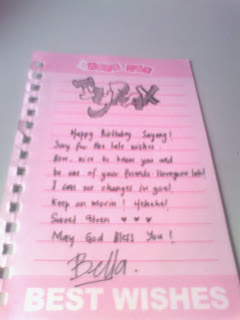 Happy Birthday Sayang!
Sorry for the late wishes
nice to know you and
be one of your friends
I can see changes in you!
Keep on movin! Hehehe!
Sweet 19teen ♥ ♥ ♥
May God Bless You!
Bella.
BEST WISHES